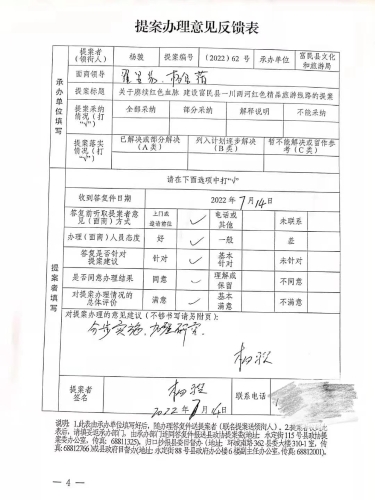 提案办理意见反馈表
承办单位填写
提案者(领衔人) 杨骏 提案编号 (2022)62 号 承办单位 富民县文化和旅游局
面商领导
提案标题 关于赓续红色血脉 建设富民县一川两河红色精品旅游线路的提案
提案采纳情况(打“√”) 全部采纳 部分采纳 解释说明 不能采纳
提案落实情况(打“√”) 已解决或部分解决(A类) 列入计划逐步解决(B类) 暂不能解决或留作参考(C类)
提案者填写
请在下面选项中打“√”
收到答复件日期 2022年7月14日
答复前听取提案者意见(面商)方式 上门或邀请面商 ✓ 电话或其他 未联系
办理(面商)人员态度 好 ✓ 一般 差
答复是否针对提案建议 针对 ✓ 基本针对 未针对
是否同意办理结果 同意 ✓ 理解或保留 不同意
对提案办理情况的总体评价 满意 ✓ 基本满意 不满意
对提案办理的意见建议(不够书写请另附页):
提案者签名
2022年7月14日
联系电话
说明: 1.此表由承办单位填写好后, 随办理答复件送提案者(联名提案送领衔人)。2.提案者
表后, 请填妥返承办部门, 由承办部门连同答复件报送县政协提案委(地址: 永定街115号县政协提
案委办公室, 传真: 68811325)。归口抄报县委督办(地址: 环城南路362县委大楼310-1室, 传
真: 68812766)或县政府目督办(地址: 永定街88号县政府办公楼6楼副主任办公室, 传真: 68812001)。
— 4 —